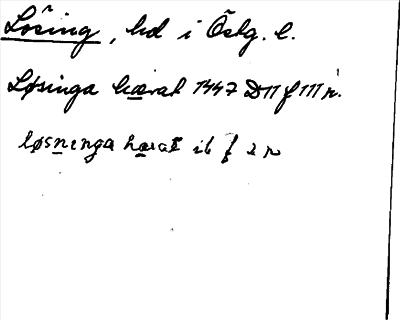 Lösing, hd i Östg. l.
Løsinga hærat 1447 D11 f 111 r.
løsnenga hærat ib f 2 r